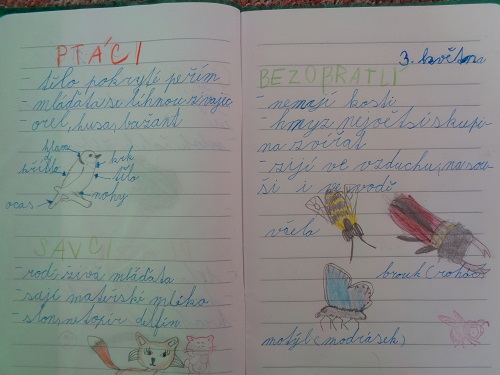 PTÁCI
- tělo pokryté peřím
- mláďata se líhnou z vajec
- orel, husa, bažant
hlava
křídlo
krk
tělo
nohy
ocas
SAVCI
- rodí živá mláďata
- sají mateřské mléko
- slon, netopír delfín
3. května
BEZOBRATLÍ
- nemají kosti
- hmyz největší skupi
na zvířat
- žijí ve vzduchu, na sou
ši i ve vodě
včela
brouk (roháč)
motýl (modrásek)